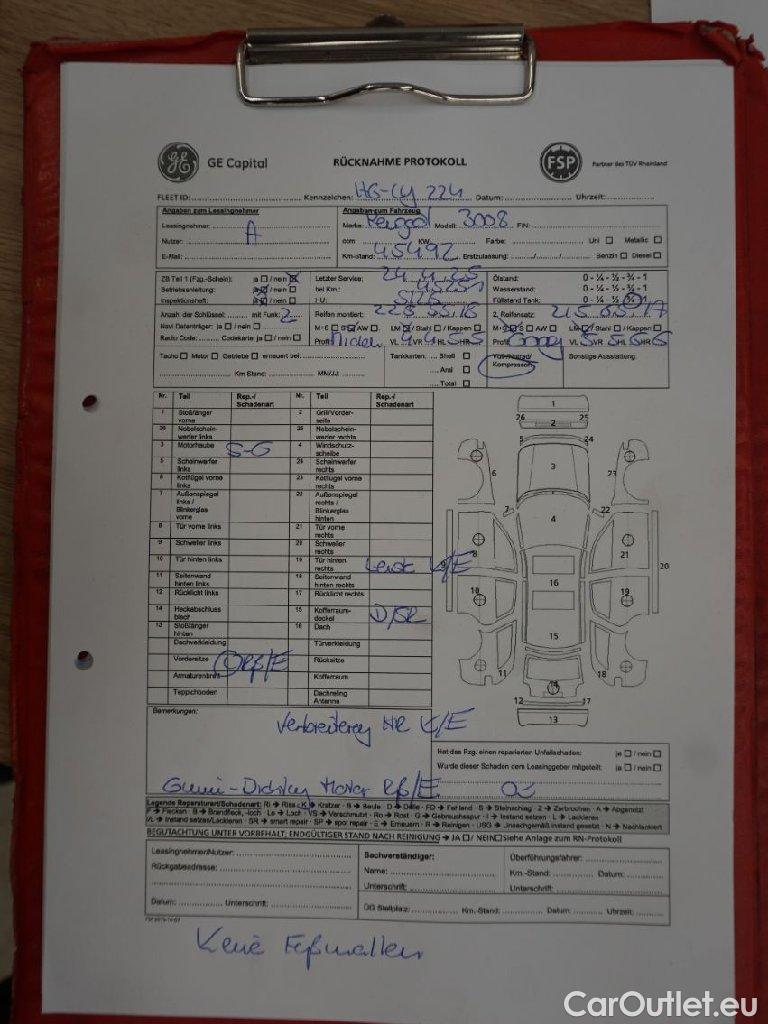 GE Capital RÜCKNAHME PROTOKOLL FSP Partner des TÜV Rheinland
FLEET ID: Kennzeichen: HG-CY 224 Datum: Uhrzeit:
Angaben zum Leasingnehmer Angaben zum Fahrzeug
Leasingnehmer: A Marke: Modell: 3008 FIN:
Nutzer: ccm KW: Farbe: Uni ☐ Metallic ☐
E-Mail: Km-Stand: 45492 Erstzulassung: Benzin ☐ Diesel ☐
ZB Teil 1 (Fzg.-Schein): ja ☐ / nein ☒ Letzter Service: Ölstand: 0 - ¼ - ½ - ¾ - 1
Betriebsanleitung: ja / nein ☐ bei Km.: Wasserstand: 0 - ¼ - ½ - ¾ - 1
Inspektionsheft: ja / nein ☐ Füllstand Tank: 0 - ¼ - ½ - ¾ - 1
Anzahl der Schlüssel: mit Funk: 2 Reifen montiert: 2. Reifensatz:
Navi Datenträger: ja ☐ / nein ☐ M+S S AW ☐ LM / Stahl ☐ / Kappen ☐ M+S S ☐ AW ☐ LM / Stahl ☐ / Kappen ☐
Radio Code: Codekarte ja ☐ / nein ☐ Profil VL 4 VR 4 HL 5 HR 5 Profil VL 5 VR 5 HL 5 HR 5
Tacho ☐ Motor ☐ Getriebe ☐ erneuert bei: Tankkarten: Shell ☐ Sonstige Ausstattung:
Kompressor
Aral ☐
Km Stand: MM/JJ: Total ☐
Nr. Teil Rep.-/ Schadenart Nr. Teil Rep.-/ Schadenart
1 Stoßfänger vorne 2 Grill/Vorderseite
26 Nebelscheinwerfer links 25 Nebelscheinwerfer rechts
3 Motorhaube S-G 4 Windschutzscheibe
5 Scheinwerfer links 24 Scheinwerfer rechts
6 Kotflügel vorne links 23 Kotflügel vorne rechts
7 Außenspiegel links / Blinkerglas vorne 22 Außenspiegel rechts / Blinkerglas hinten
8 Tür vorne links 21 Tür vorne rechts
9 Schweller links 20 Schweller rechts
10 Tür hinten links 19 Tür hinten rechts K/E
11 Seitenwand hinten links 18 Seitenwand hinten rechts
12 Rücklicht links 17 Rücklicht rechts
14 Heckabschlussblech 15 Kofferraumdeckel D/SR
13 Stoßfänger hinten 16 Dach
Dachverkleidung Türverkleidung
Vordersitze Rücksitze
Armaturenbrett Kofferraum
Teppichboden Dachreling Antenne
1
26 25
2
6 3 23
7 4 22
8 21
9 20
10 16 19
15
11 18
14
12 17
13
Bemerkungen:
Verbreiterung HR K/E
Hat das Fzg. einen reparierten Unfallschaden: ja ☐ / nein ☐
Wurde dieser Schaden dem Leasinggeber mitgeteilt: ja ☐ / nein ☐
Legende Reparaturart/Schadenart: Ri → Riss - K → Kratzer - B → Beule - D → Delle - FD → Fehlend - S → Steinschlag - Z → Zerbrochen - A → Abgenutzt
F → Flecken - B → Brandfleck, -loch - Lo → Loch - VS → Verschmutzt - Ro → Rost - G → Gebrauchsspur - I → Instand setzen - L → Lackieren
I/L → Instand setzen/Lackieren - SR → smart repair - SP → spot repair - E → Erneuern - R → Reinigen - USG → Unsachgemäß instand gesetzt - N → Nachlackiert
BEGUTACHTUNG UNTER VORBEHALT; ENDGÜLTIGER STAND NACH REINIGUNG → JA ☐ / NEIN ☐ Siehe Anlage zum RN-Protokoll
Leasingnehmer/Nutzer: Sachverständiger: Überführungsfahrer:
Rückgabeadresse: Name: Km.-Stand: Datum:
Unterschrift: Unterschrift:
Datum: Unterschrift: DG Stellplatz: Km.-Stand: Datum: Uhrzeit:
CarOutlet.eu